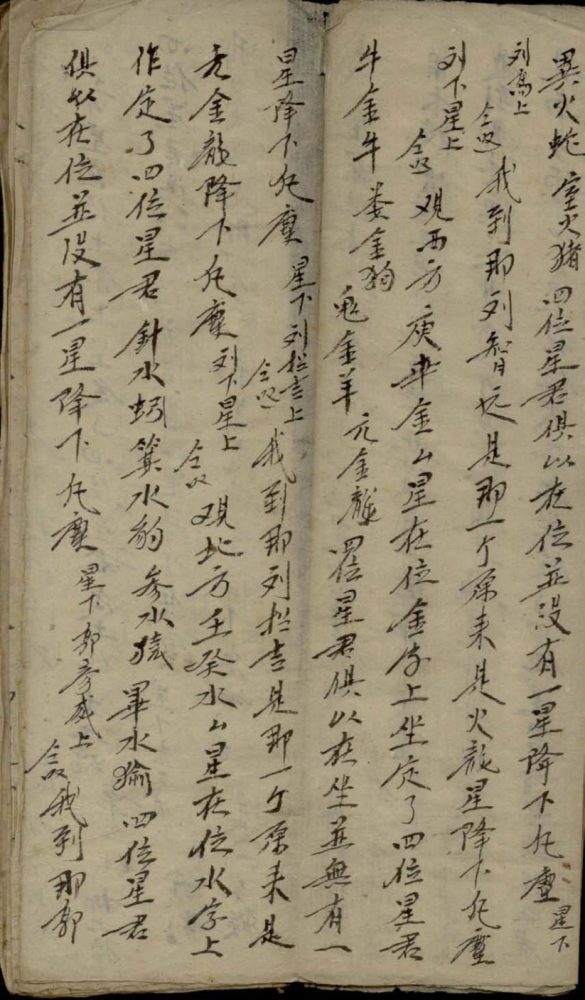 異火蛇 室火猪 四位星君俱以在位並没有一星降下凡塵 星下
列高上 我到那列智遠是那一个原来是火龍星降下凡塵
列下星上 观西方庚辛金厶星在位金字上坐定了四位星君
牛金牛 婁金狗 鬼金羊 亢金龍 四位星君俱以在坐並無有一
星降下凡塵 星下列拦吉上 我到那列拦吉是那一个原来是
亢金龍降下凡塵 列下星上 观北方壬癸水厶星在位水字上
作定了四位星君 針水蚓 箕水豹 参水猿 畢水獝 四位星君
俱以在位並没有一星降下凡塵 星下郭彦威上 我到那郭